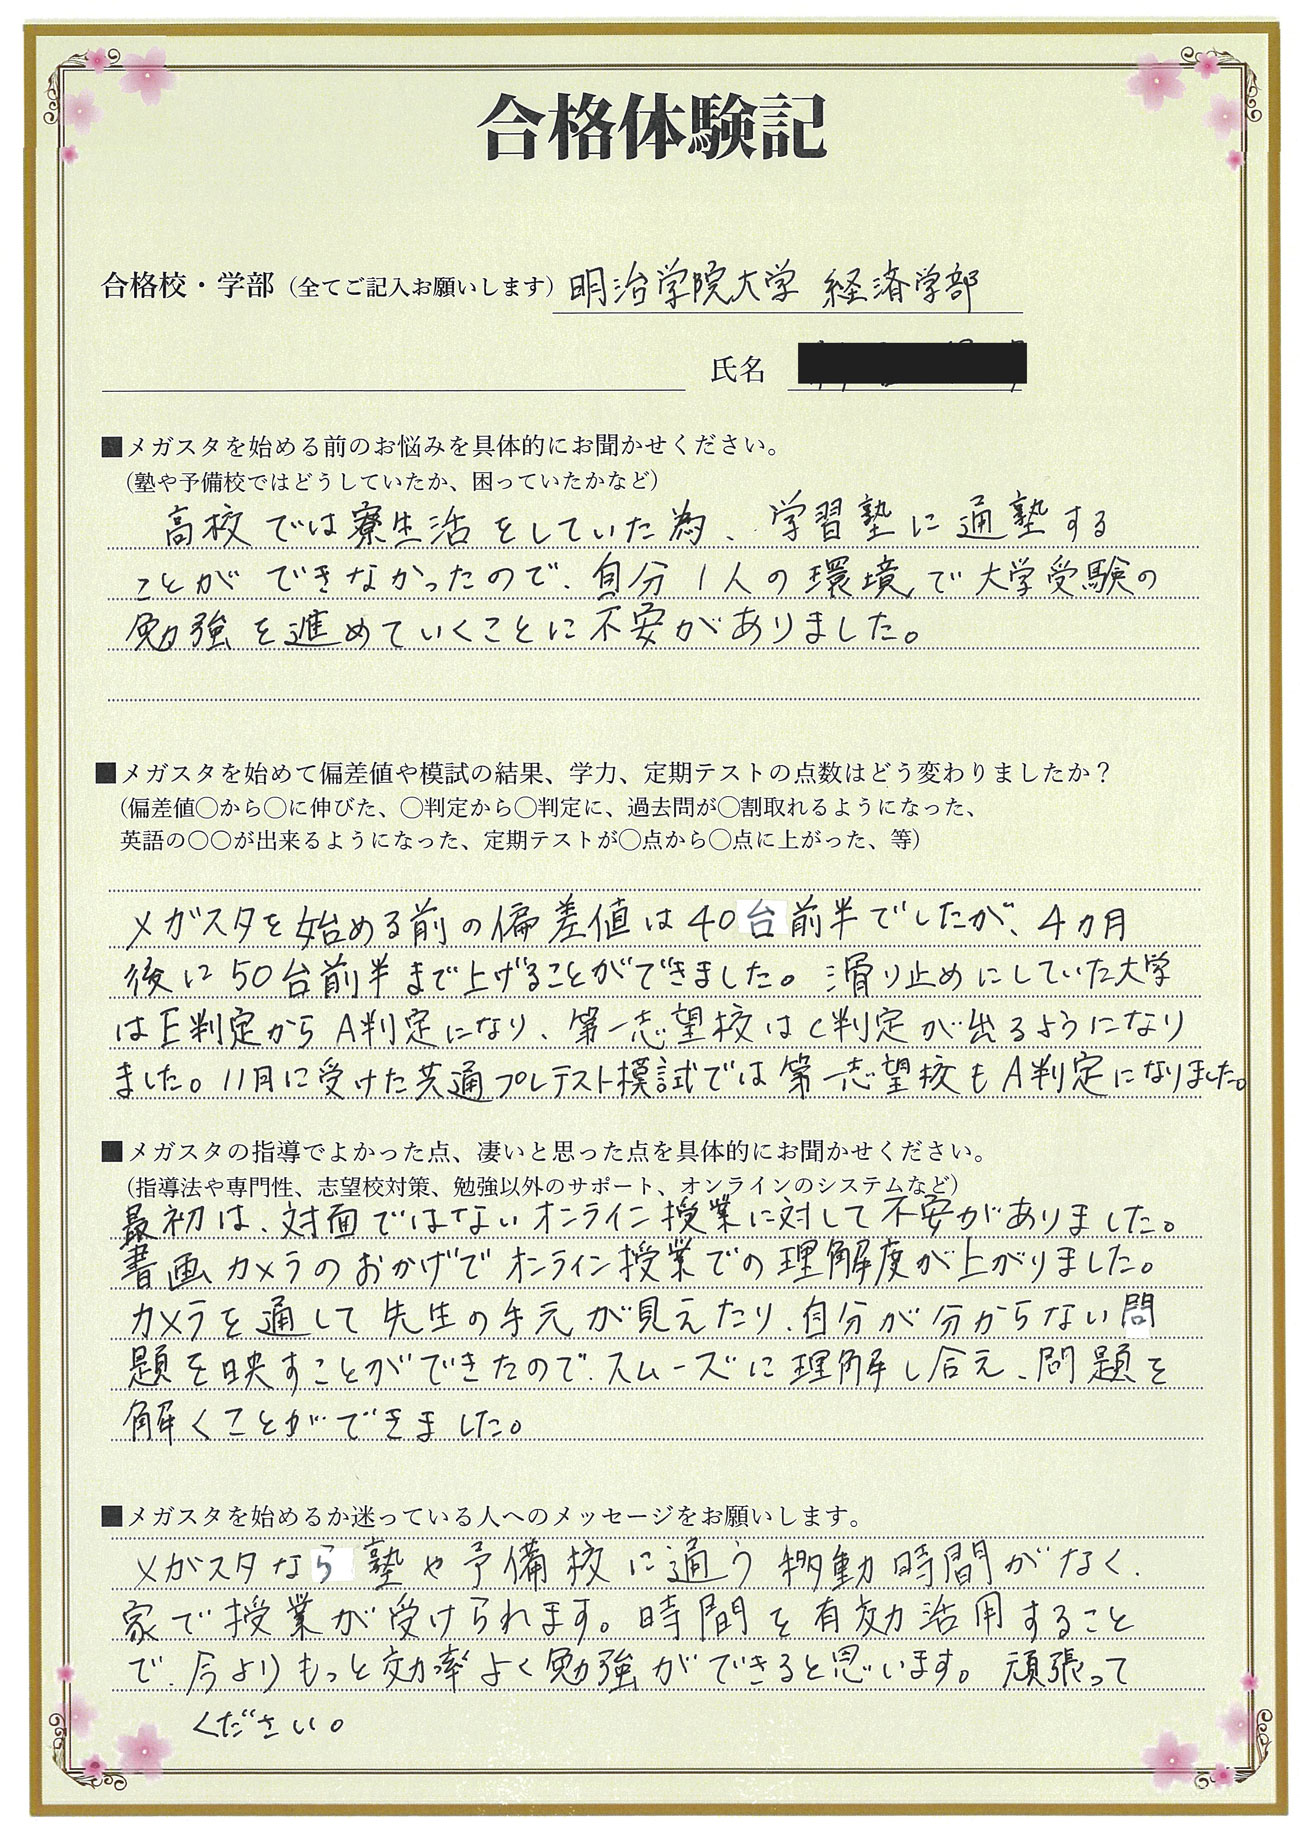 合格体験記
合格校・学部（全てご記入お願いします）明治学院大学 経済学部
氏名
■メガスタを始める前のお悩みを具体的にお聞かせください。
（塾や予備校ではどうしていたか、困っていたかなど）
高校では寮生活をしていた為、学習塾に通塾する
ことができなかったので、自分1人の環境で大学受験の
勉強を進めていくことに不安がありました。
■メガスタを始めて偏差値や模試の結果、学力、定期テストの点数はどう変わりましたか？
（偏差値〇から〇に伸びた、〇判定から〇判定に、過去問が〇割取れるようになった、
英語の〇〇が出来るようになった、定期テストが〇点から〇点に上がった、等）
メガスタを始める前の偏差値は40台前半でしたが、4カ月
後に50台前半まで上げることができました。滑り止めにしていた大学
はE判定からA判定になり、第一志望校はC判定が出るようになり
ました。11月に受けた共通プレテスト模試では第一志望校もA判定になりました。
■メガスタの指導でよかった点、凄いと思った点を具体的にお聞かせください。
（指導法や専門性、志望校対策、勉強以外のサポート、オンラインのシステムなど）
最初は、対面ではないオンライン授業に対して不安がありました。
書画カメラのおかげでオンライン授業での理解度が上がりました。
カメラを通して先生の手元が見えたり、自分が分からない問
題を映すことができたので、スムーズに理解し合え、問題を
解くことができました。
■メガスタを始めるか迷っている人へのメッセージをお願いします。
メガスタなら塾や予備校に通う移動時間がなく、
家で授業が受けられます。時間を有効活用すること
で、今よりもっと効率よく勉強ができると思います。頑張って
ください。